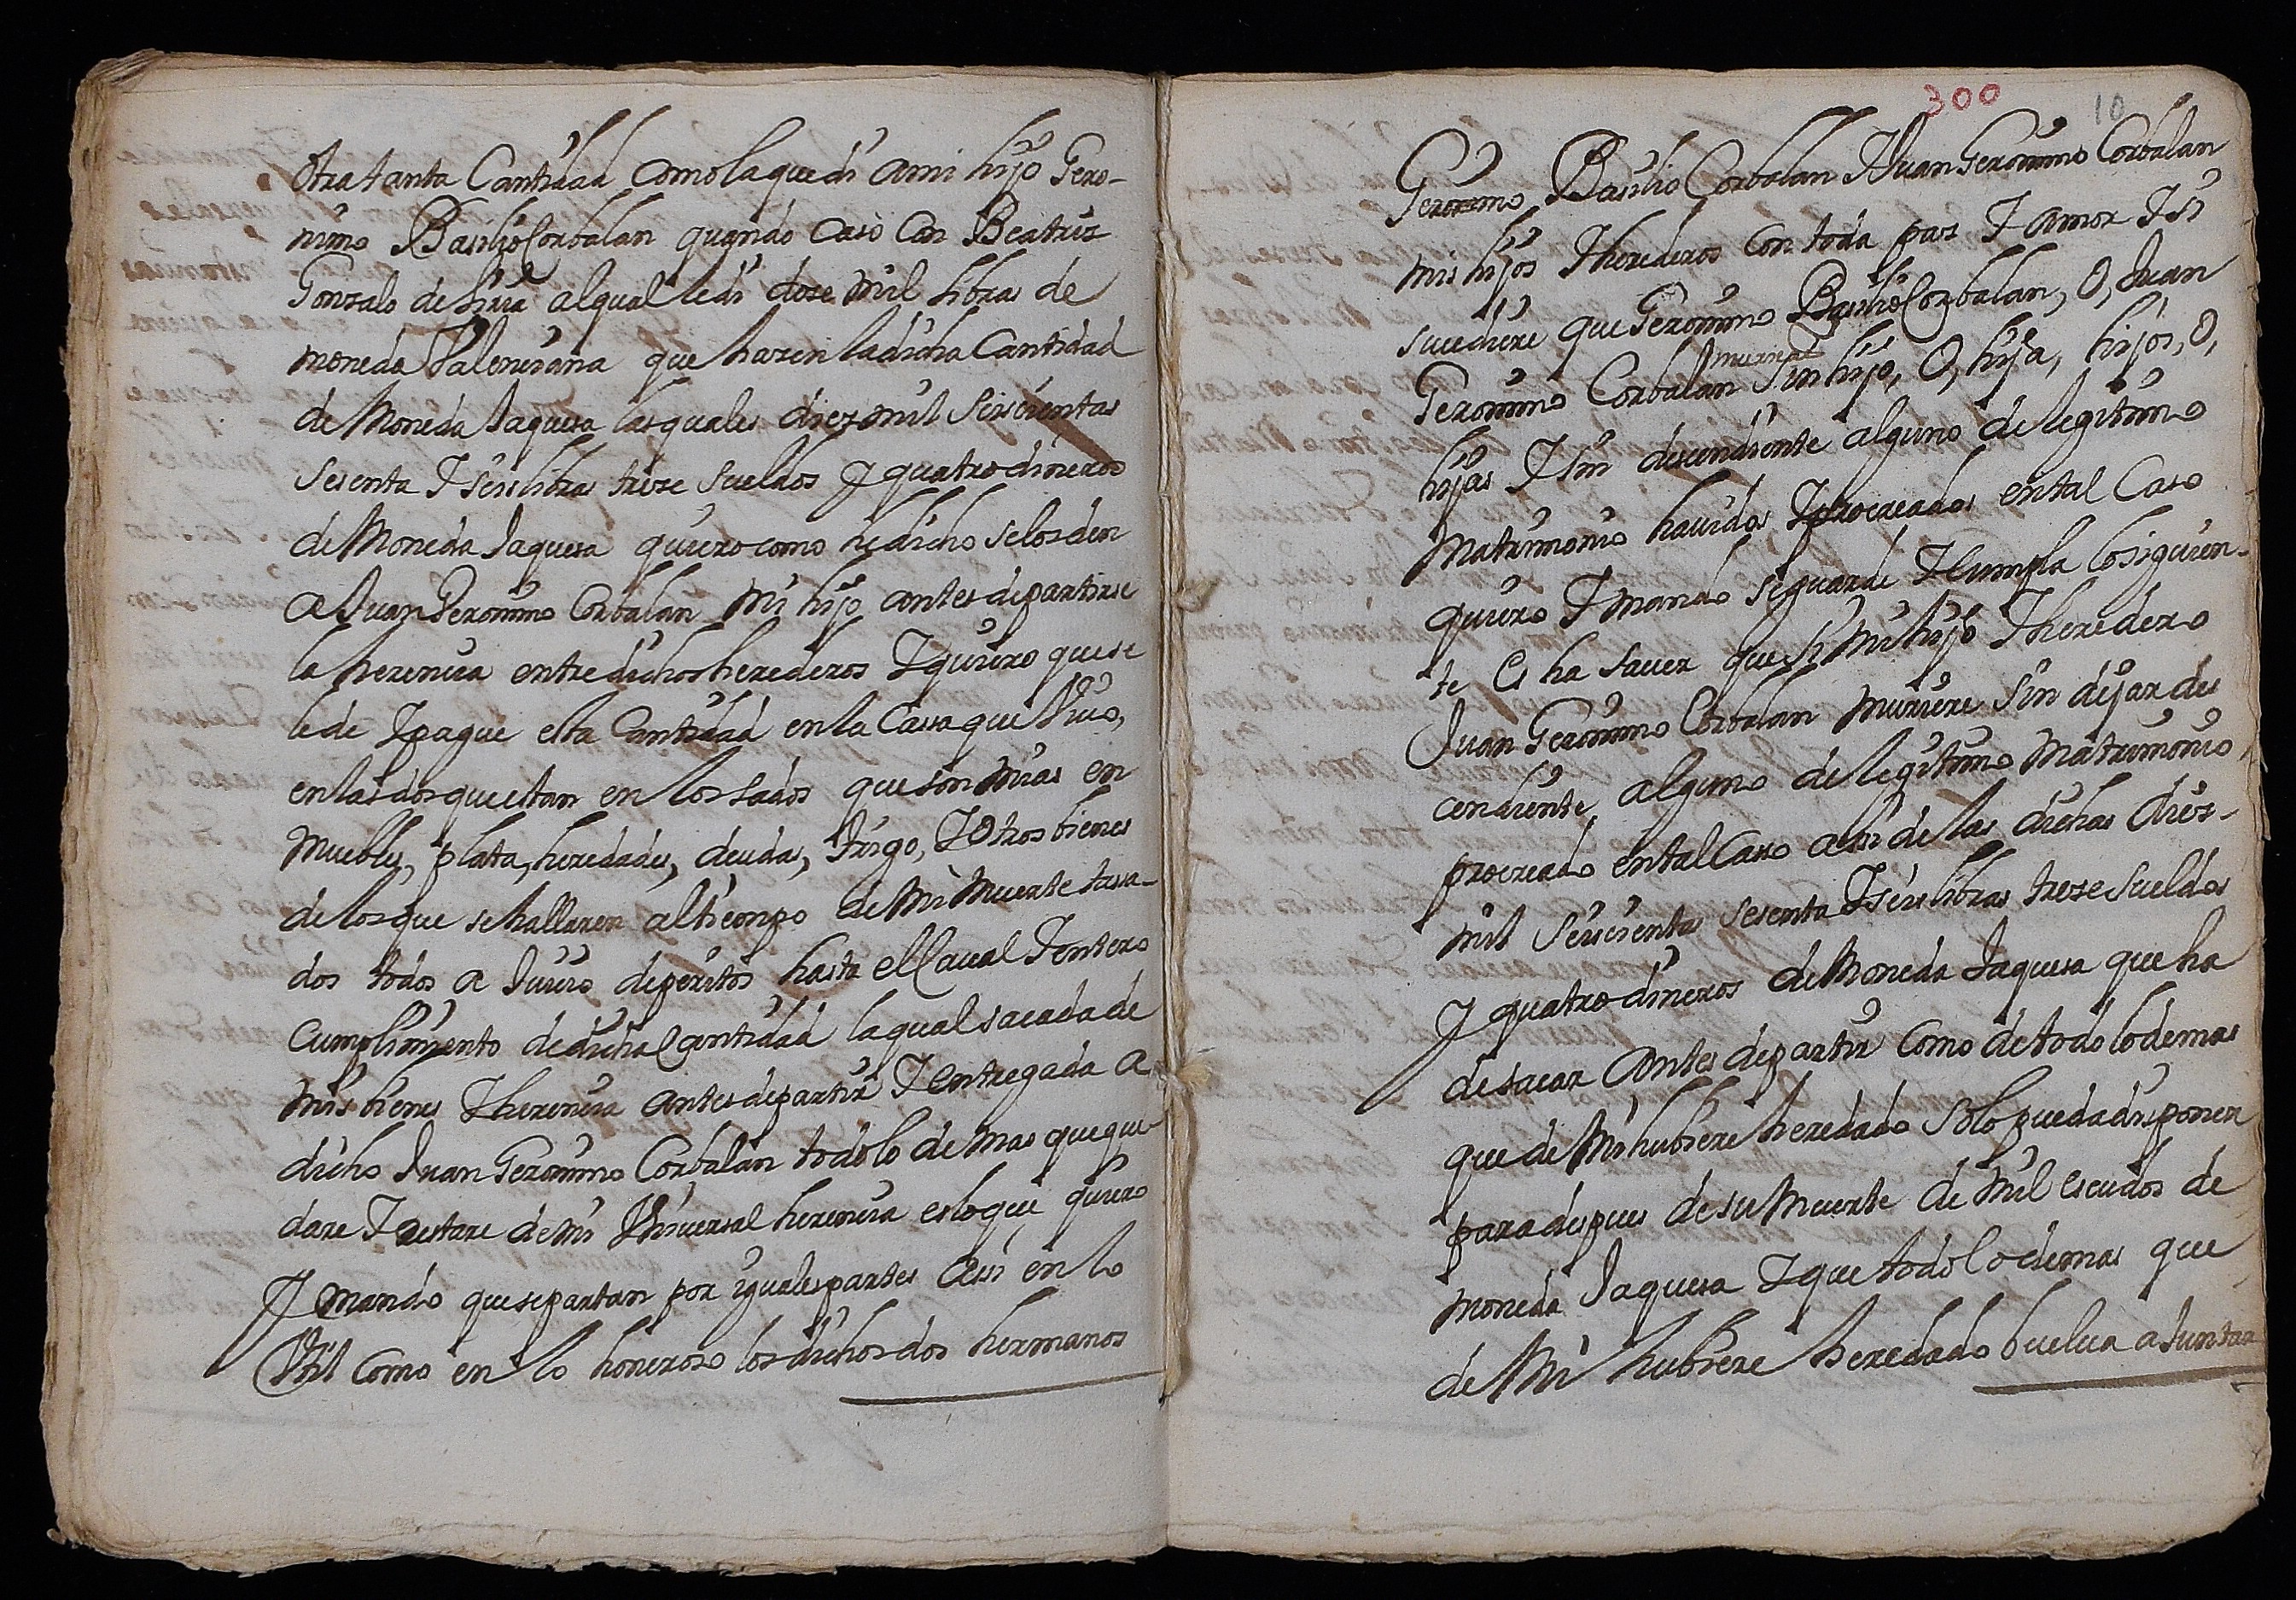 Otra tanta Cantidad como la que di a mi hijo Gero-
nimo Basilio Corbalan quando caso con Beatriz
Gonzalo de Liria al qual le di doze mil libras de
moneda Valenciana que hazen la dicha Cantidad
de Moneda Jaquesa las quales diez mil seiscientas
sesenta I seis libras treze sueldos I quatro dineros
de Moneda Jaquesa quiero como he dicho se los den
a Juan Geronimo Corbalan mi hijo antes de partirse
la herencia entre dichos herederos I quiero que se
le de I pague esta Cantidad en la Cassa que Viuo,
en las dos que estan en los lados que son mias en
Muebles, plata, heredades, deudas, trigo, I otros bienes
de los que se hallaren al tiempo de mi Muerte tassa-
dos todos a Juicio de peritos hasta el Caual I entero
cumplimiento de dicha Cantidad la qual sacada de
mis bienes I herencia antes de partir I entregada a
dicho Juan Geronimo Corbalan todo lo de mas que que-
dare I restare de mi Vniversal herencia es lo que quiero
I mando que se partan por iguales partes assi en lo
Vtil como en lo honeroso los dichos dos hermanos
300
10
Geronimo Basilio Corbalan I Juan Geronimo Corbalan
mis hijos I herederos con toda paz I amor I si
sucediere que Geronimo Basilio Corbalan, O, Juan
muriese
Geronimo Corbalan sin hijo, O, hija, hijos, O,
hijas I sin descendiente alguno de legitimo
Matrimonio hauidos I procreados en tal Caso
quiero I mando se guarde I Cumpla lo siguien-
te Es ha sauer que si mi hijo I heredero
Juan Geronimo Corbalan muriere sin dejar des
cendiente alguno de legitimo Matrimonio,
procreado en tal Casso assi de las dichas diez-
mil seiscientas sesenta I seis libras treze sueldos
I quatro dineros de Moneda Jaquesa que ha
de sacar antes de partir como de todo lo demas
que de Mi hubiere heredado solo pueda disponer
para despues de su Muerte de mil escudos de
moneda Jaquesa I que todo lo demas que
de Mi hubiere heredado buelua a Juntar